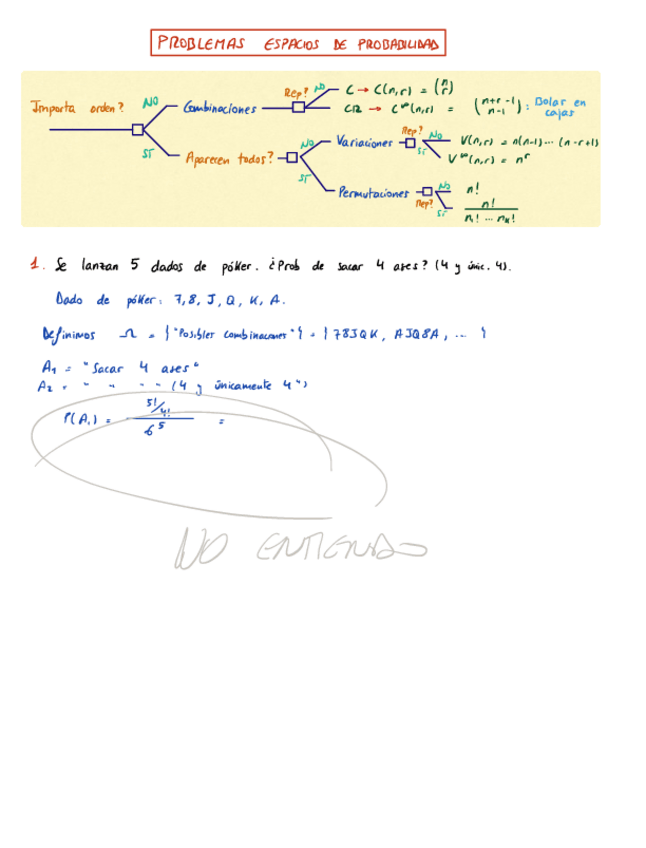 PROBLEMAS ESPACIOS DE PROBABILIDAD
Importa orden? NO Combinaciones Rep? NO C → C(n,r) = (n r)
CR → C^∞(n,r) = (n+r-1 n-1) : Bolas en cajas
SÍ Aparecen todos? NO Variaciones Rep? NO V(n,r) = n(n-1)... (n-r+1)
SÍ V^∞(n,r) = n^r
SÍ Permutaciones Rep? NO n!
SÍ n! / n₁! ... nₖ!
1. Se lanzan 5 dados de póker. ¿Prob de sacar 4 ases? (4 y únic. 4).
Dado de póker: 7, 8, J, Q, K, A.
Definimos Ω = {"Posibles combinaciones"} = {78JQK, AJQ8A, ... }
A₁ = "Sacar 4 ases"
A₂ = " " " " (4 y únicamente 4")
P(A₁) = 5!/4! / 6^5 =
NO ENTIENDO